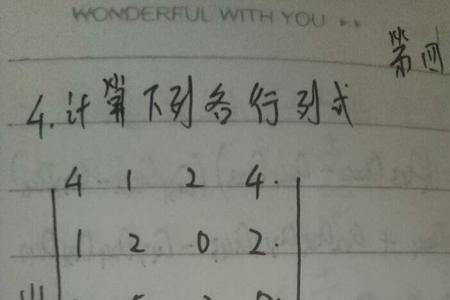 WONDERFUL WITH YOU
第四
4. 计算下列各行列式
4 1 2 4
1 2 0 2